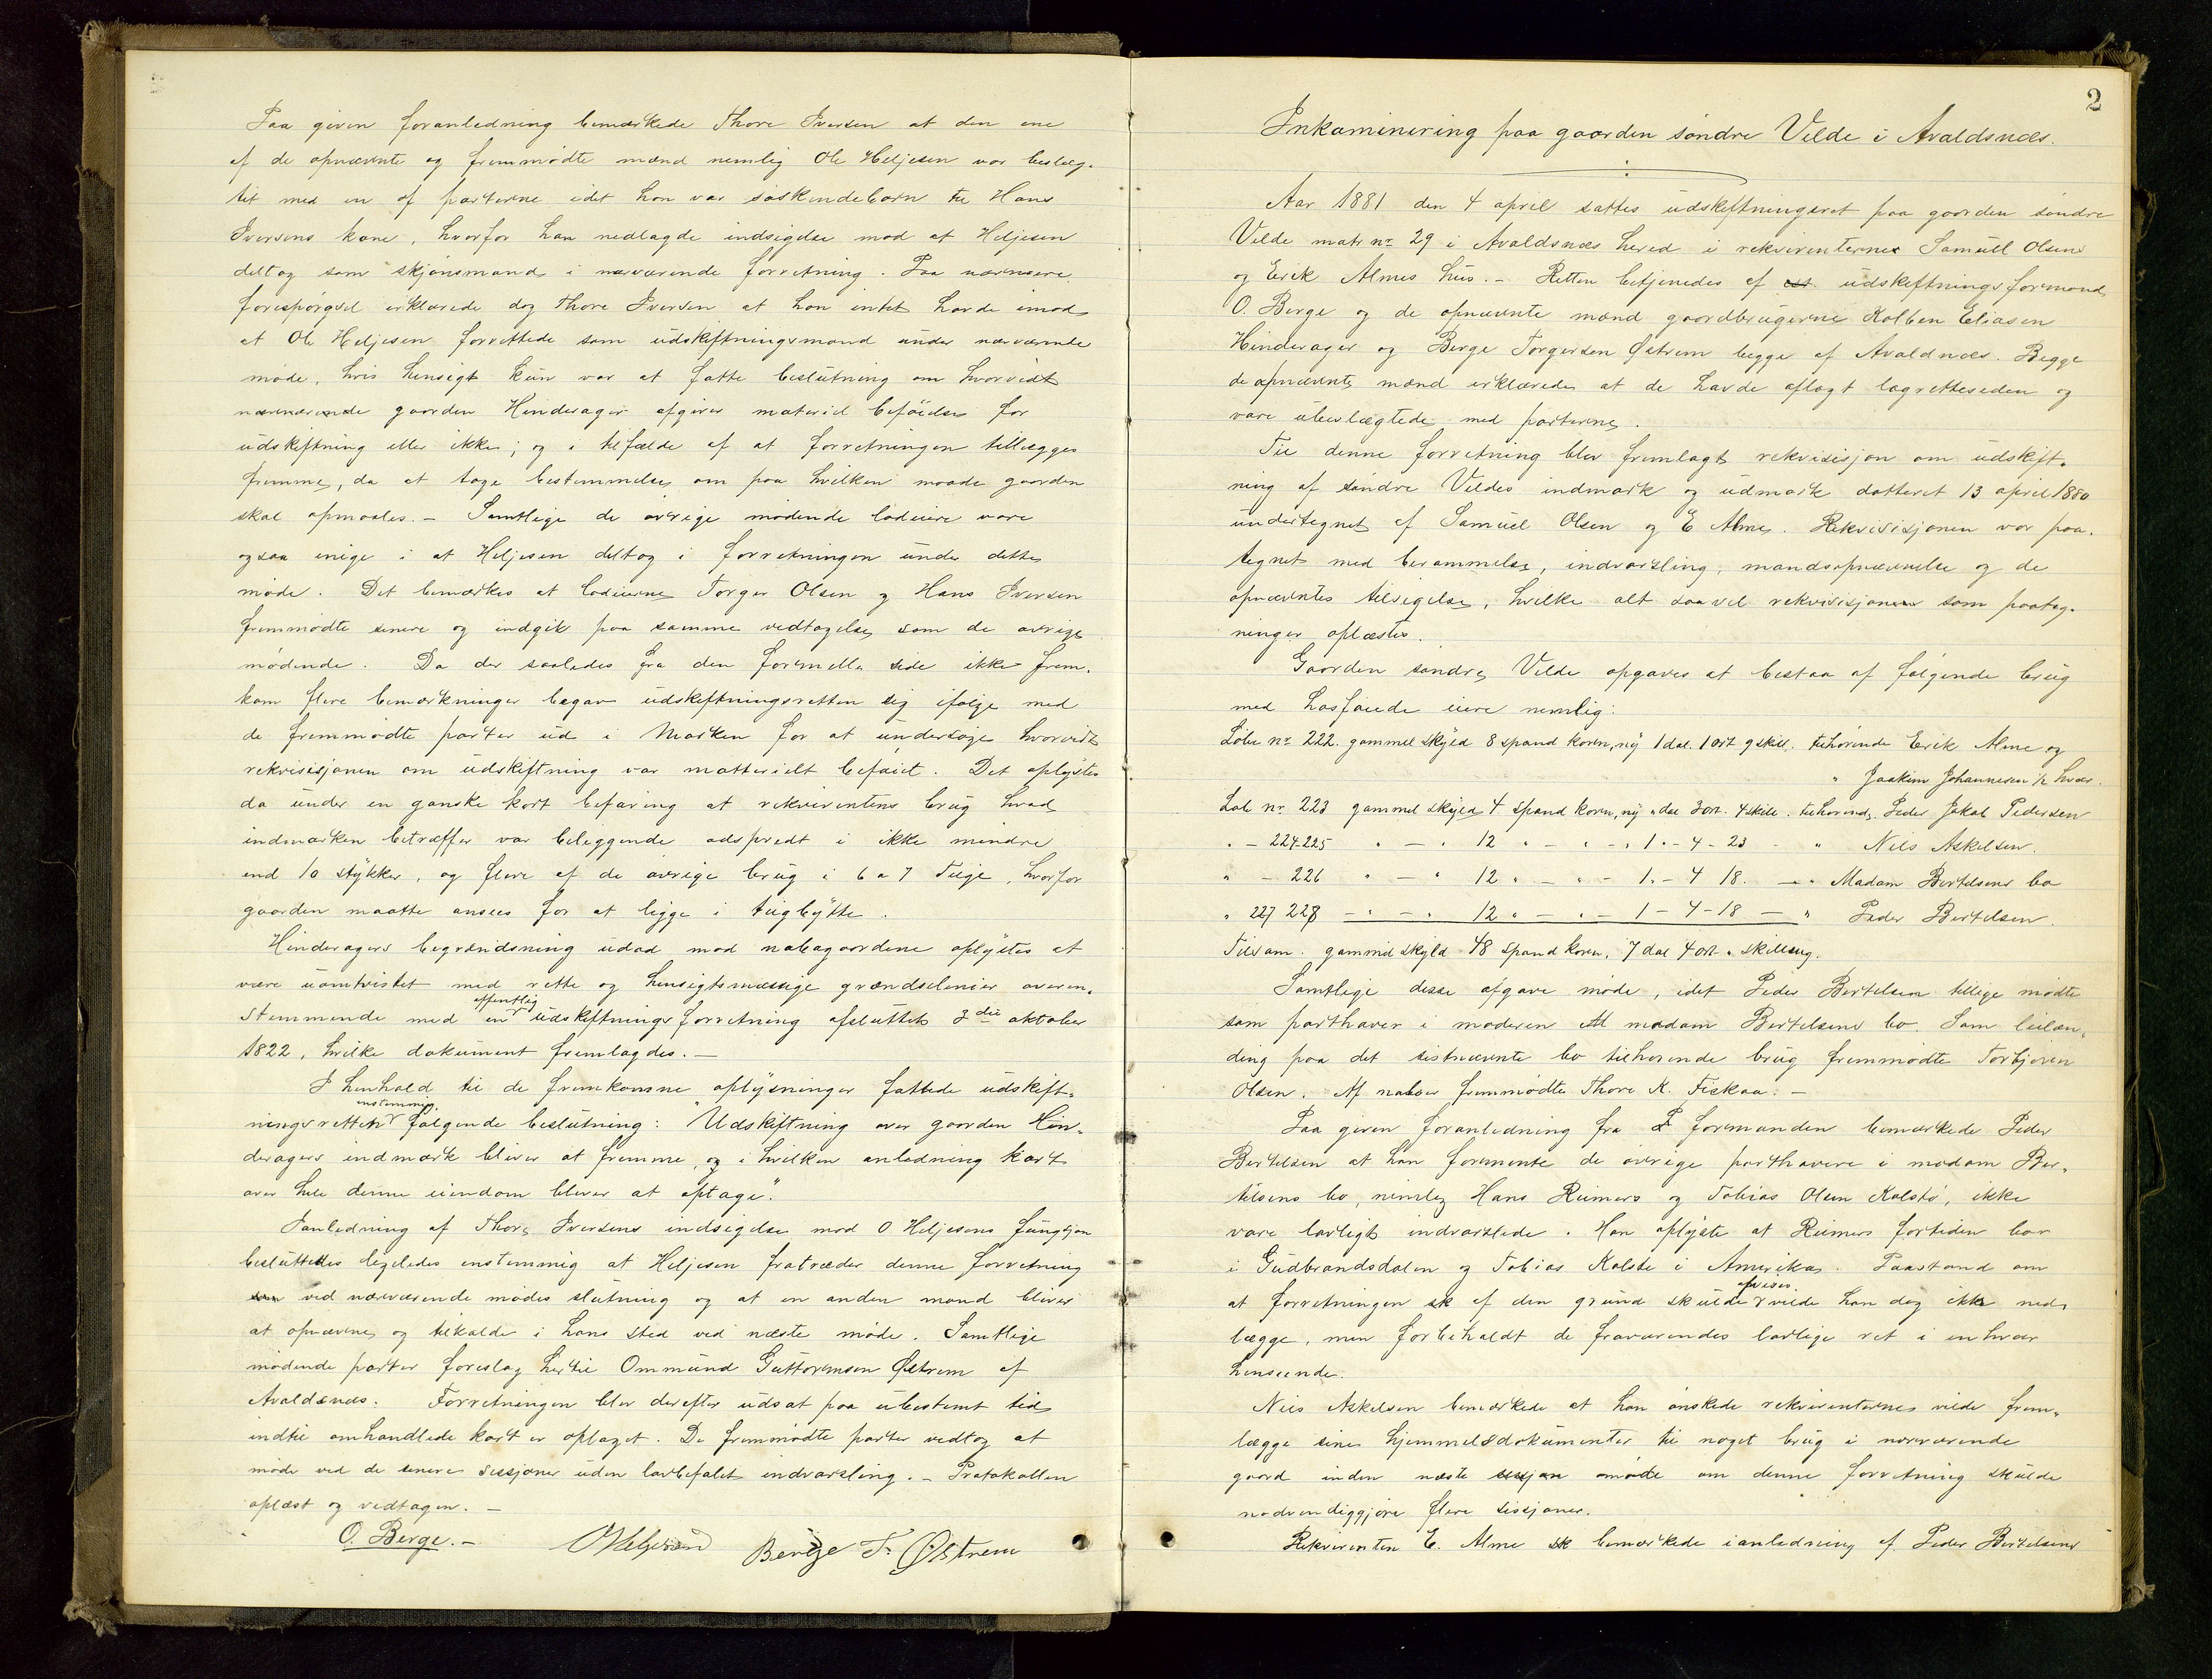 Paa given foranledning bemærkede Thore Iversen at den ene
af de opnævnte og fremmødte mænd nemlig Ole Heljesen var beslæg-
tet med en af parterne idet han var søskendebarn til Hans
Iversens kone, hvorfor han nedlagde indsigelse mod at Heljesen
deltog som skjønsmand i nærværende forretning. Paa nærmere
forespørgsel erklærede dog Thore Iversen at han intet havde imod
at Ole Heljesen forrettede som udskiftningsmand under nærværende
møde, hvis hensigt kun var at fatte beslutning om hvorvidt
nærværende gaarden Hinderager afgiver materiel beføielse for
udskiftning eller ikke; og i tilfælde af at forretningen tillægges
fremme, da at tage bestemmelse om paa hvilken maade gaarden
skal opmaales. – Samtlige de øvrige mødende lodeiere vare
ogsaa enige i at Heljesen deltog i forretningen under dette
møde. Det bemærkes at lodeierne Torger Olsen og Hans Iversen
fremmødte senere og indgik paa samme vedtagelse som de øvrige
mødende. Da der saaledes fra den formelle side ikke frem-
kom flere bemærkninger begav udskiftningsretten sig ifølge med
de fremmødte parter ud i Marken for at undersøge hvorvidt
rekvisisjonen om udskiftning var matterielt beføiet. Det oplystes
da under en ganske kort befaring at rekvirentens brug hvad
indmarken betræffer var beliggende adspredt i ikke mindre
end 10 stykker, og flere af de øvrige brug i 6 a 7 Teige, hvorfor
gaarden maatte ansees for at ligge i teigbytte.
Hinderagers begrændsning udad mod nabogaardene oplystes at
være uomtvistet med rette og hensigtsmæssige grændselinier overen-
stemmende med en offentlig udskiftnings forretning afsluttet 3die oktober
1822, hvilke dokument fremlagdes. –
I henhold til de fremkomne oplysninger fattede udskift-
ningsretten enstemmig følgende beslutning: "Udskiftning over gaarden Hin-
deragers indmark bliver at fremme, og i hvilken anledning kart
over hele denne eiendom bliver at optage".
I anledning af Thore Iversens indsigelse mod O Heljesens fungsjon
besluttedes ligeledes enstemmig at Heljesen fratræder denne forretning
ved nærværende mødes slutning og at en anden mand bliver
at opnævne og tilkalde i hans sted ved næste møde. Samtlige
mødende parter foreslog hertil Ommund Guttormsen Østrem af
Avaldsnæs. Forretningen blev derefter udsat paa ubestemt tid
indtil omhandlede kart er optaget. De fremmødte parter vedtog at
møde ved de senere sessjoner uden lovbefalet indvarsling. – Protokollen
oplæst og vedtagen. –
O. Berge. – O Heljesen Berge T. Østrem
2
Inkaminering paa gaarden søndre Velde i Avaldsnæs.
Aar 1881 den 4 april sattes udskiftningsret paa gaarden søndre
Velde matr nr 29 i Avaldsnæs hered i rekvirenternes Samuel Olsens
og Erik Almes hus. – Retten betjenedes af udskiftningsformand
O. Berge og de opnævnte mænd gaardbrugerne Kolben Eliasen
Hinderager og Berge Torgersen Østrem begge af Avaldsnæs. Begge
de opnævnte mænd erklærede at de havde aflagt lagretteseden og
vare ubeslægtede med parterne.
Til denne forretning blev fremlagt rekvisisjon om udskift-
ning af søndre Veldes indmark og udmark datteret 13 april 1880
undertegnet af Samuel Olsen og E Alme. Rekvisisjonen var paa-
tegnet med berammelse, indvarsling, mandsopnævnelse og de
opnævntes tilsigelse, hvilke alt saavel rekvisisjonen som paateg-
ninger oplæstes.
Gaarden søndre Velde opgaves at bestaa af følgende brug
med hosføiede eiere nemlig:
Løbe nr. 222. gammel skyld 8 spand korn, ny 1 dal. 1 ort 9 skill. tilhørende Erik Alme og
" Joakim Johannesen 1/2 hver.
Løb nr. 223 gammel skyld 4 spand korn, ny " dal 3 ort. 4 skill. tilhørende Peder Jakob Pedersen
" – 224.225 " – " 12 " – " – " 1 " – 4 – 23 – " Nils Askelsen.
" – 226 " – " 12 " – " – 1. – 4 18. – " Madam Bertelsens bo
" 227 228 – " – " 12 " – " – 1 – 4 – 18 – " Peder Bertelsen
Tilsam. gammel skyld 48 spand korn, 7 dal 4 ort " skilling.
Samtlige disse afgave møde, idet Peder Bertelsen tillige mødte
som parthaver i moderen madam Bertelsens bo. Som leilæn-
ding paa det sistnævnte bo tilhørende brug fremmødte Torbjørn
Olsen. Af naboer fremmødte Thore K. Fiskaa. –
Paa given foranledning fra formanden bemærkede Peder
Bertelsen at han formente de øvrige parthavere i madam Ber-
telsens bo, nemlig Hans Reimers og Tobias Olsen Kolstø, ikke
vare lovligt indvarslede. Han oplyste at Reimers fortiden bor
i Gudbrandsdalen og Tobias Kolstø i Amerika. Paastand om
at forretningen af den grund skulde afvises vilde han dog ikke ned-
lægge, men forbeholdt de fraværendes lovlige ret i enhver
henseende.
Nils Askelsen bemærkede at han ønskede rekvirenterne vilde frem-
lægge sine hjemmelsdokumenter til noget brug i nærværende
gaard inden næste møde om denne forretning skulde
nødvendiggjøre flere sessjoner.
Rekvirenten E. Alme bemærkede i anledning af Peder Bertelsens